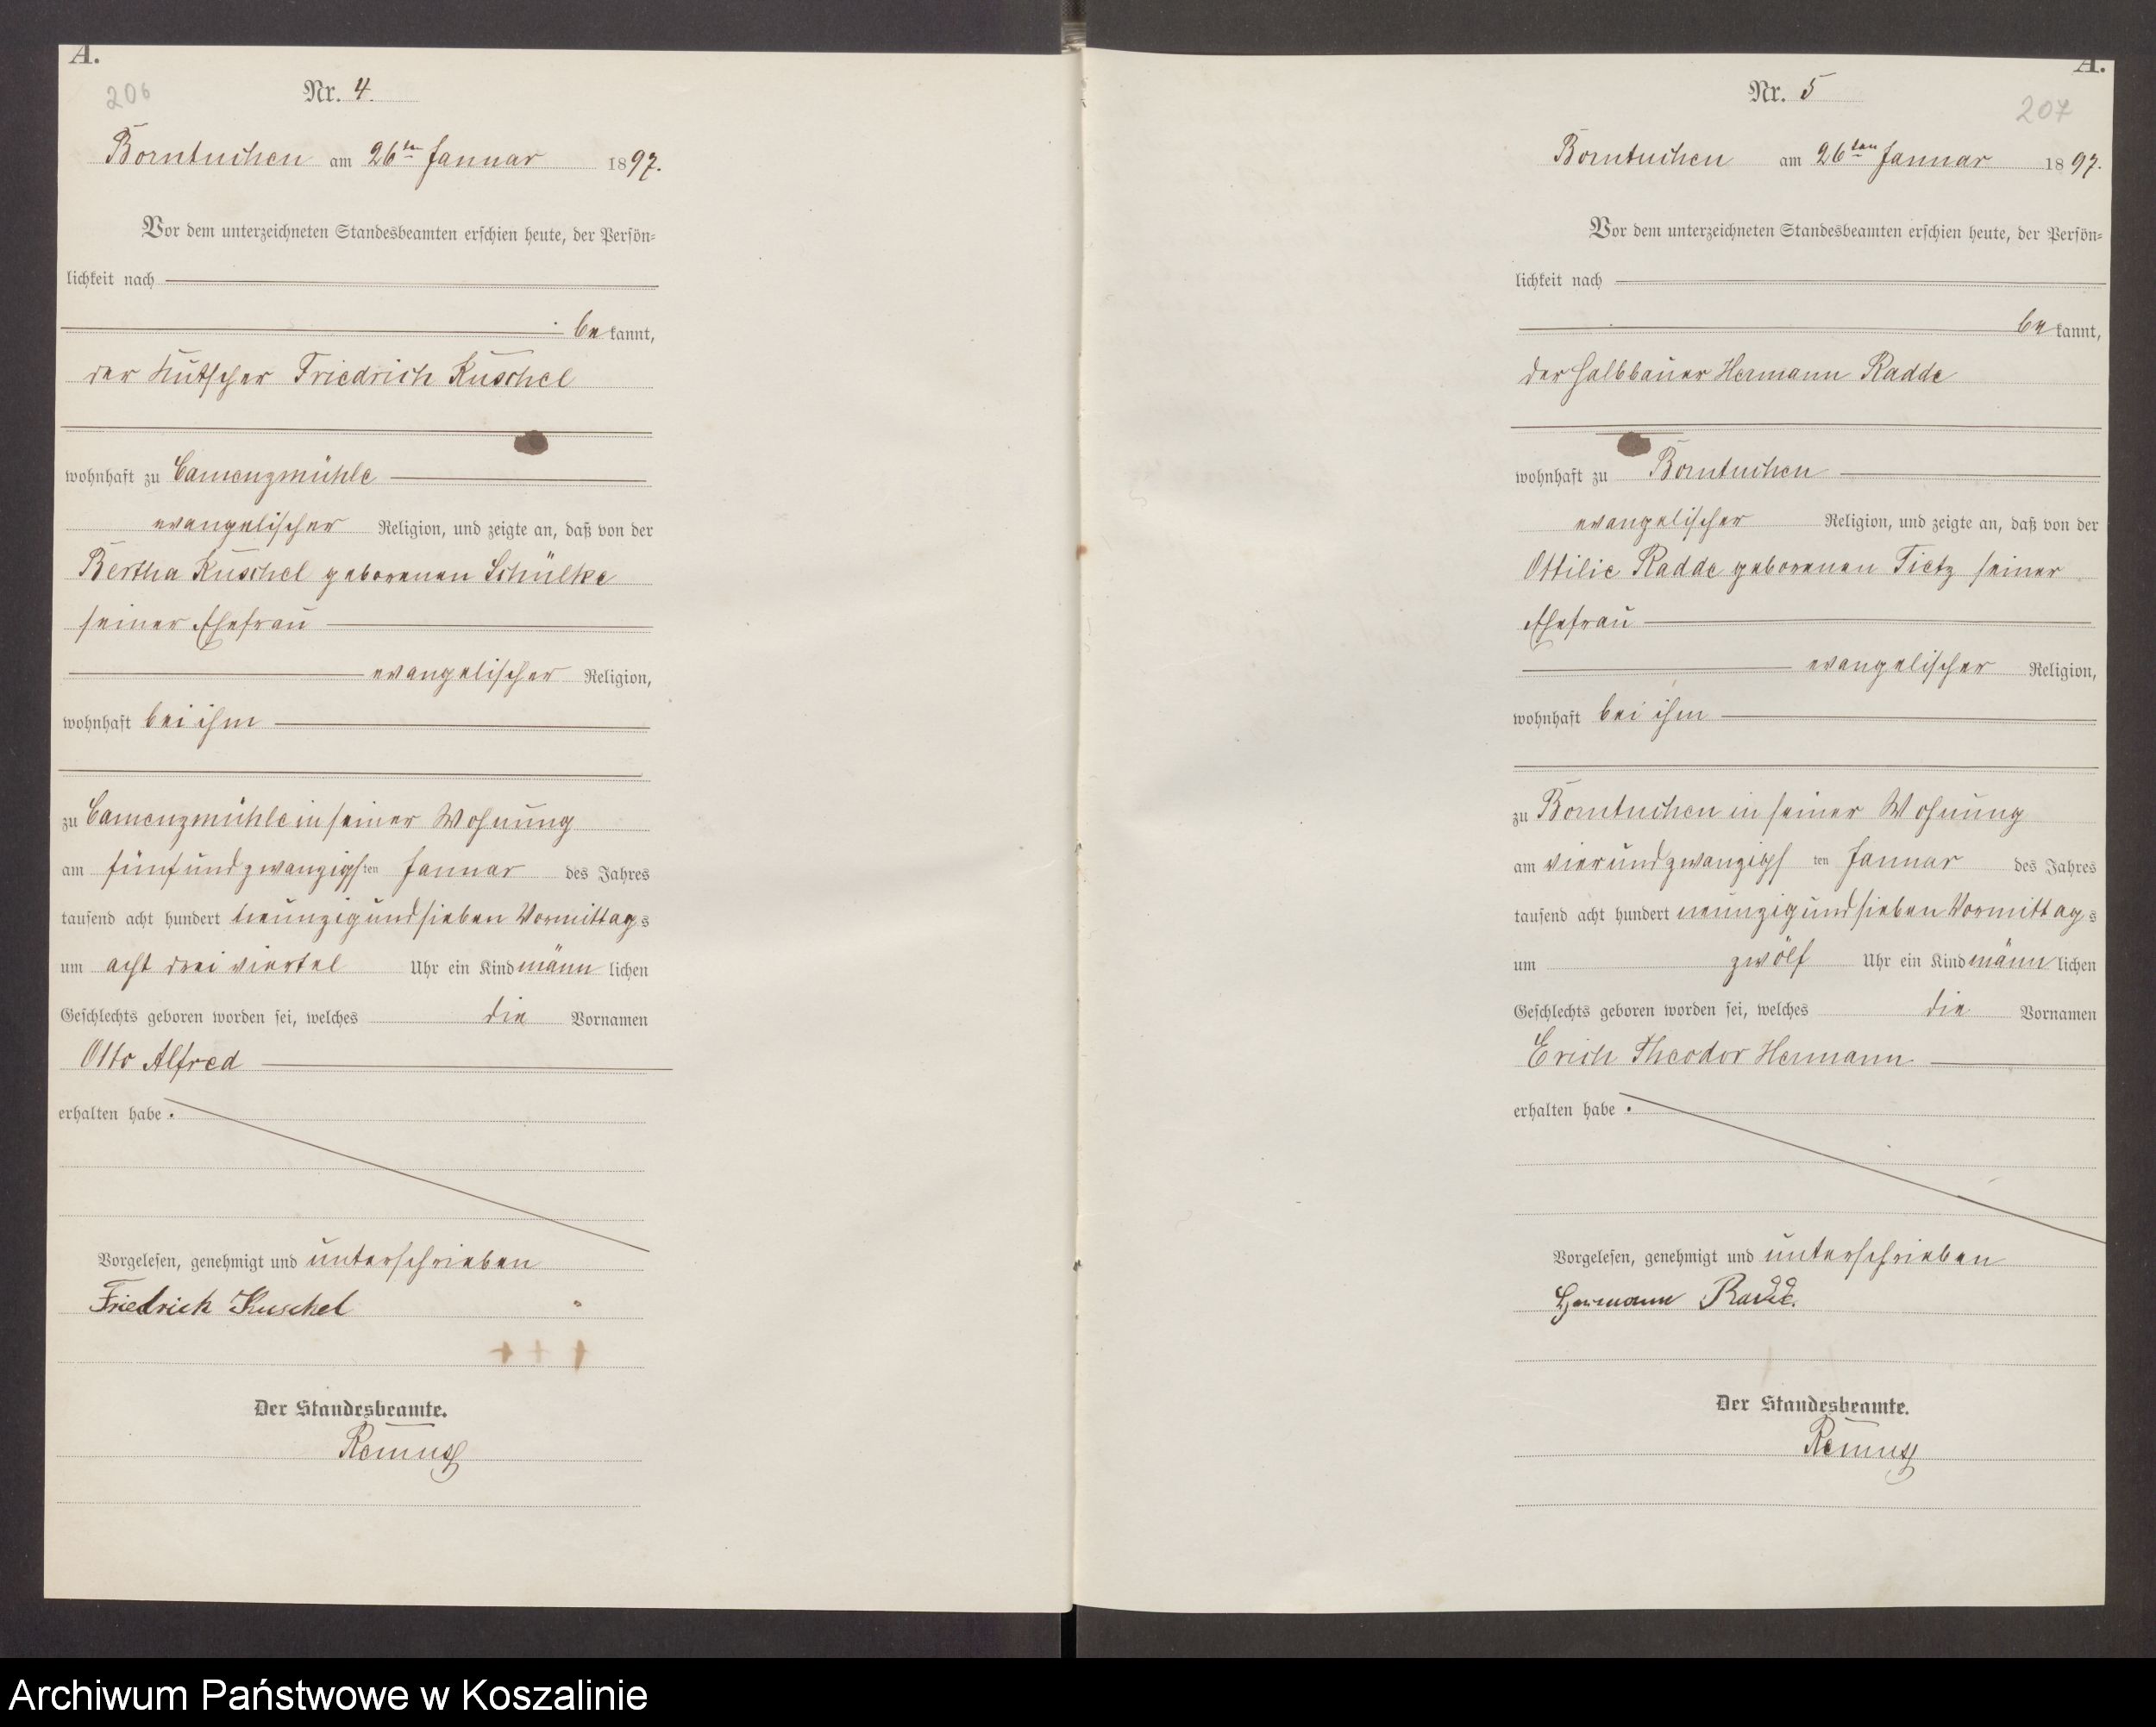 A.
206
Nr. 4.
Borntuchen am 26ten Januar 1897.
Vor dem unterzeichneten Standesbeamten erschien heute, der Persön-
lichkeit nach
bekannt,
der Kutscher Friedrich Kuschel
wohnhaft zu Camenzmühle
evangelischer Religion, und zeigte an, daß von der
Bertha Kuschel geborenen Schülke
seiner Ehefrau
evangelischer Religion,
wohnhaft bei ihm
zu Camenzmühle in seiner Wohnung
am fünfundzwanzigsten Januar des Jahres
tausend acht hundert neunzig und sieben Vormittags
um acht drei viertel Uhr ein Kind männlichen
Geschlechts geboren worden sei, welches die Vornamen
Otto Alfred
erhalten habe.
Vorgelesen, genehmigt und unterschrieben
Friedrich Kuschel
Der Standesbeamte.
Remus
A.
207
Nr. 5
Borntuchen am 26ten Januar 1897.
Vor dem unterzeichneten Standesbeamten erschien heute, der Persön-
lichkeit nach
bekannt,
der Halbbauer Hermann Radde
wohnhaft zu Borntuchen
evangelischer Religion, und zeigte an, daß von der
Ottilie Radde geborenen Tietz seiner
Ehefrau
evangelischer Religion,
wohnhaft bei ihm
zu Borntuchen in seiner Wohnung
am vierundzwanzigsten Januar des Jahres
tausend acht hundert neunzig und sieben Vormittags
um zwölf Uhr ein Kind männlichen
Geschlechts geboren worden sei, welches die Vornamen
Erich Theodor Hermann
erhalten habe.
Vorgelesen, genehmigt und unterschrieben
Hermann Radde.
Der Standesbeamte.
Remus
Archiwum Państwowe w Koszalinie